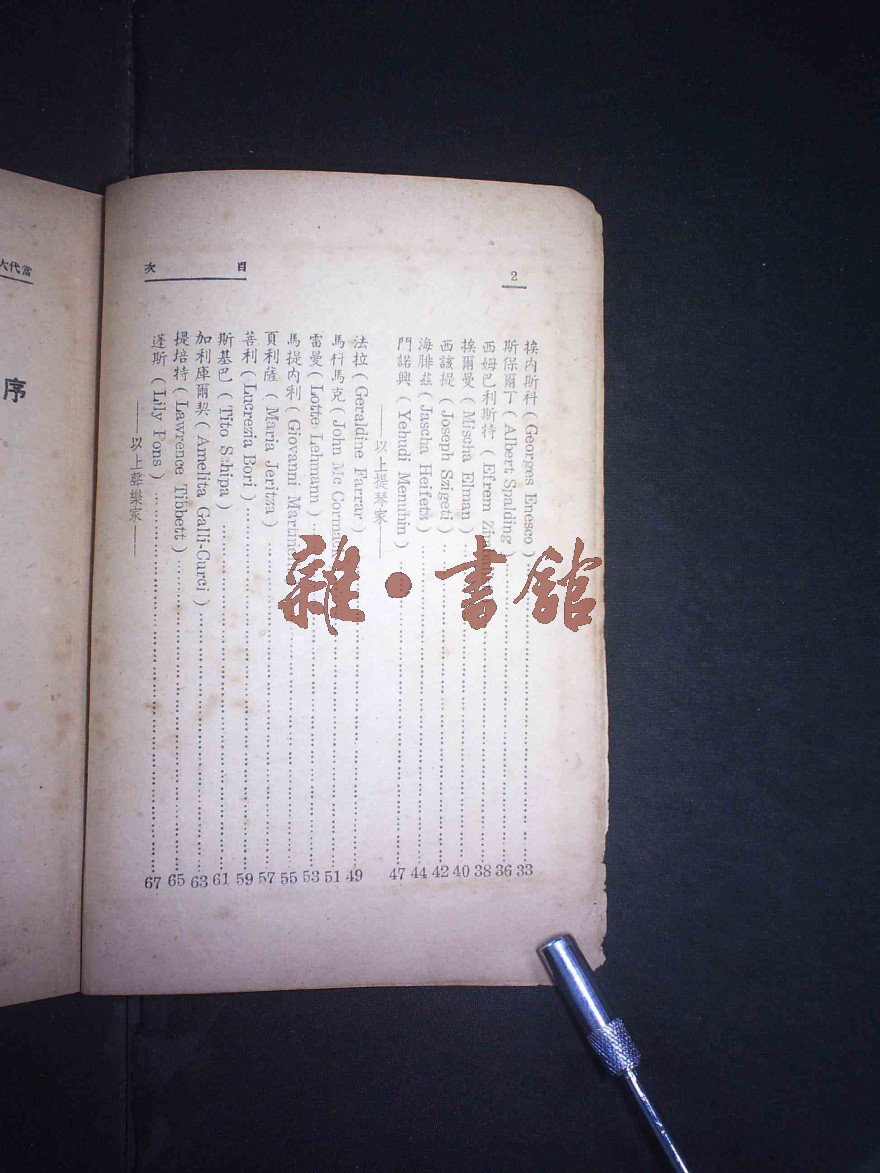 2
目次
埃內斯科 (Georges Enesco) 33
斯保爾丁 (Albert Spalding) 36
西姆巴利斯特 (Efrem 38
埃爾曼 (Mischa Elman) 40
西該提 (Joseph Szigeti) 42
海腓茲 (Jascha Heifetz) 44
門諾興 (Yehudi Menuhin) 47
——以上提琴家——
法拉 (Geraldine Farrar) 49
馬科馬克 (John Mc 51
雷曼 (Lotte Lehmann) 53
馬提內利 (Giovanni 55
頁利薩 (Maria Jeritza) 57
菩利 (Lucrezia Bori) 59
斯基巴 (Tito Schipa) 61
加利庫爾契 (Amelita Galli-Curci) 63
提培特 (Lawrence Tibbett) 65
蓬斯 (Lily Pons) 67
——以上聲樂家——
當代大
序
雜·書館